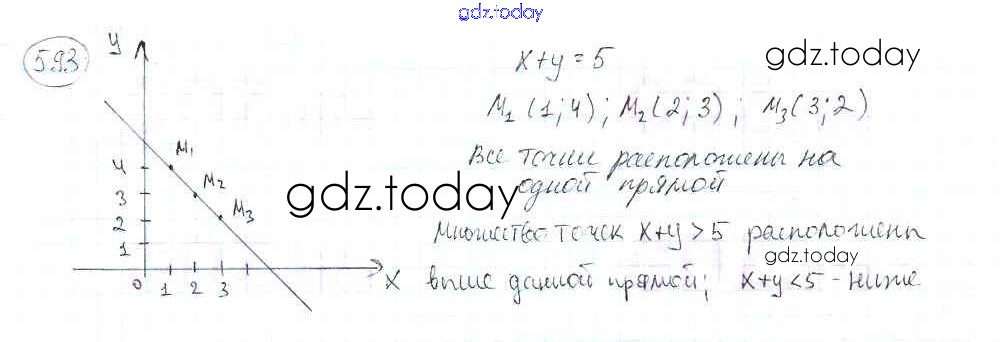 gdz.today
593
y
x+y=5
gdz.today
M₁(1;4); M₂(2;3); M₃(3;2)
M₁
Все точки расположены на
4
M₂
одной прямой
3
M₃
gdz.today
2
Множество точек x+y>5 расположены
1
gdz.today
0 1 2 3
X
выше данной прямой; x+y<5 - ниже